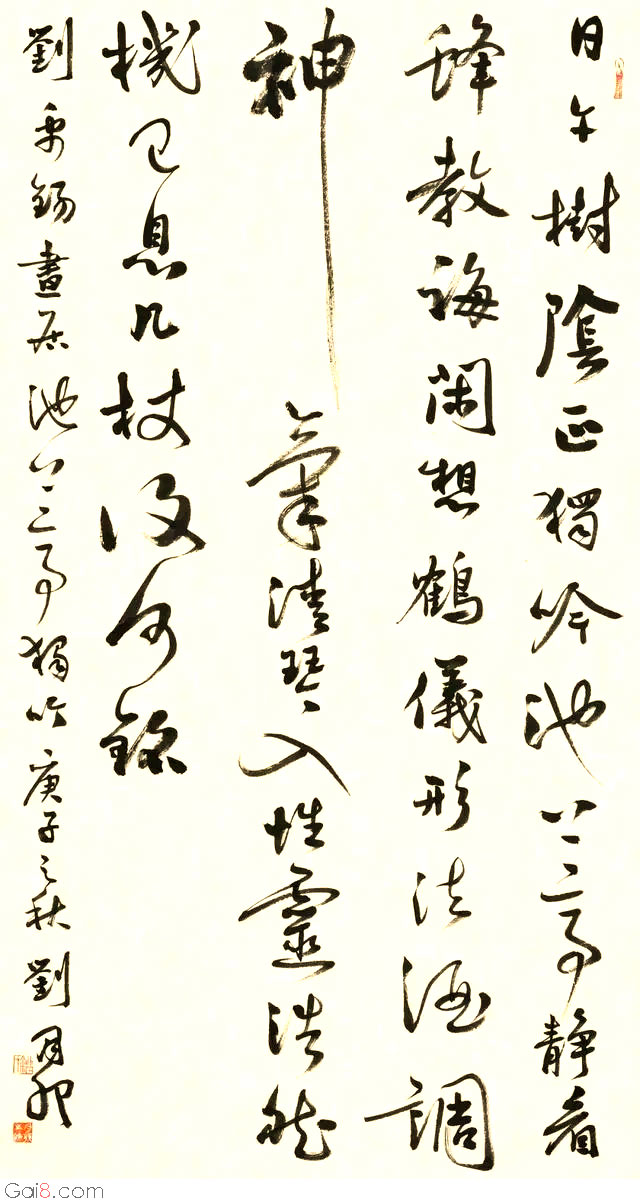 日午樹陰正獨吟池上亭静看
蜂教誨閑想鶴儀形法酒調
神氣清琴入性靈浩然
機已息几杖復何銘
劉禹錫晝居池上亭獨吟庚子之秋劉月卯
Gai8.com